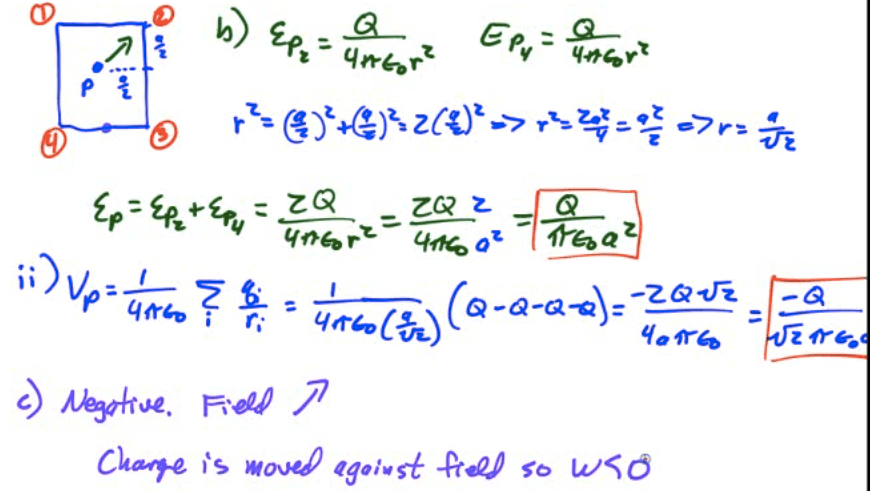 ① ②
a/2
P a/2
④ ③
b) Ɛp₂ = Q/4πϵ₀r² Ep₄ = Q/4πϵ₀r²
r² = (a/2)² + (a/2)² = 2(a/2)² => r² = 2a²/4 = a²/2 => r = a/√2
Ɛp = Ɛp₂ + Ɛp₄ = 2Q/4πϵ₀r² = 2Q 2/4πϵ₀ a² = Q/πϵ₀a²
ii) Vp = 1/4πϵ₀ Σi qi/ri = 1/4πϵ₀(a/√2) (Q-Q-Q-Q) = -2Q√2/4aπϵ₀ = -Q/√2πϵ₀a
c) Negative. Field ↗
Charge is moved against field so W<0